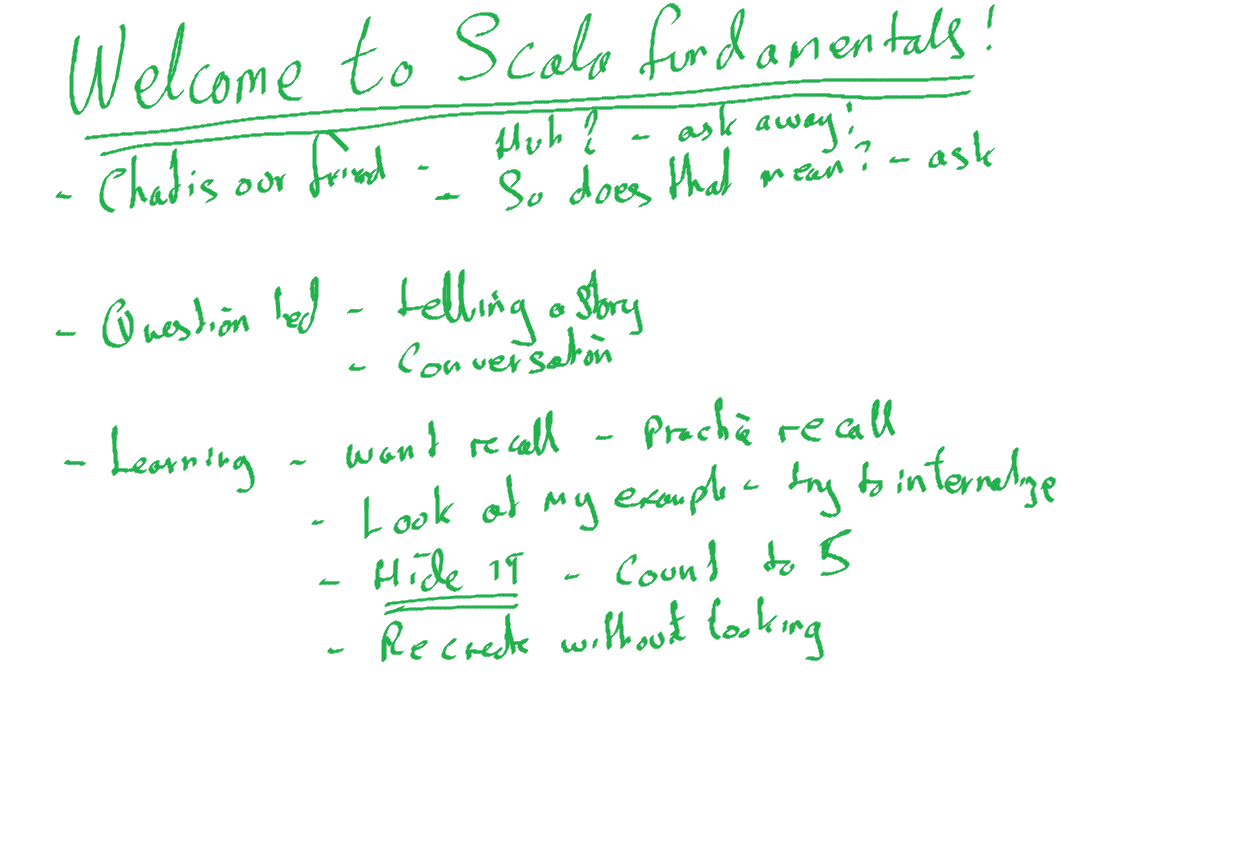 Welcome to Scala fundamentals!
- Chat is our friend - Huh? - ask away!
- So does that mean? - ask
- Question led - telling a story
- Conversation
- Learning - want recall - practice recall
- Look at my example - try to internalize
- Hide it - Count to 5
- Recreate without looking